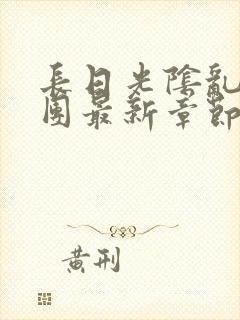 長日光陰亂
團最新章節
黃刑